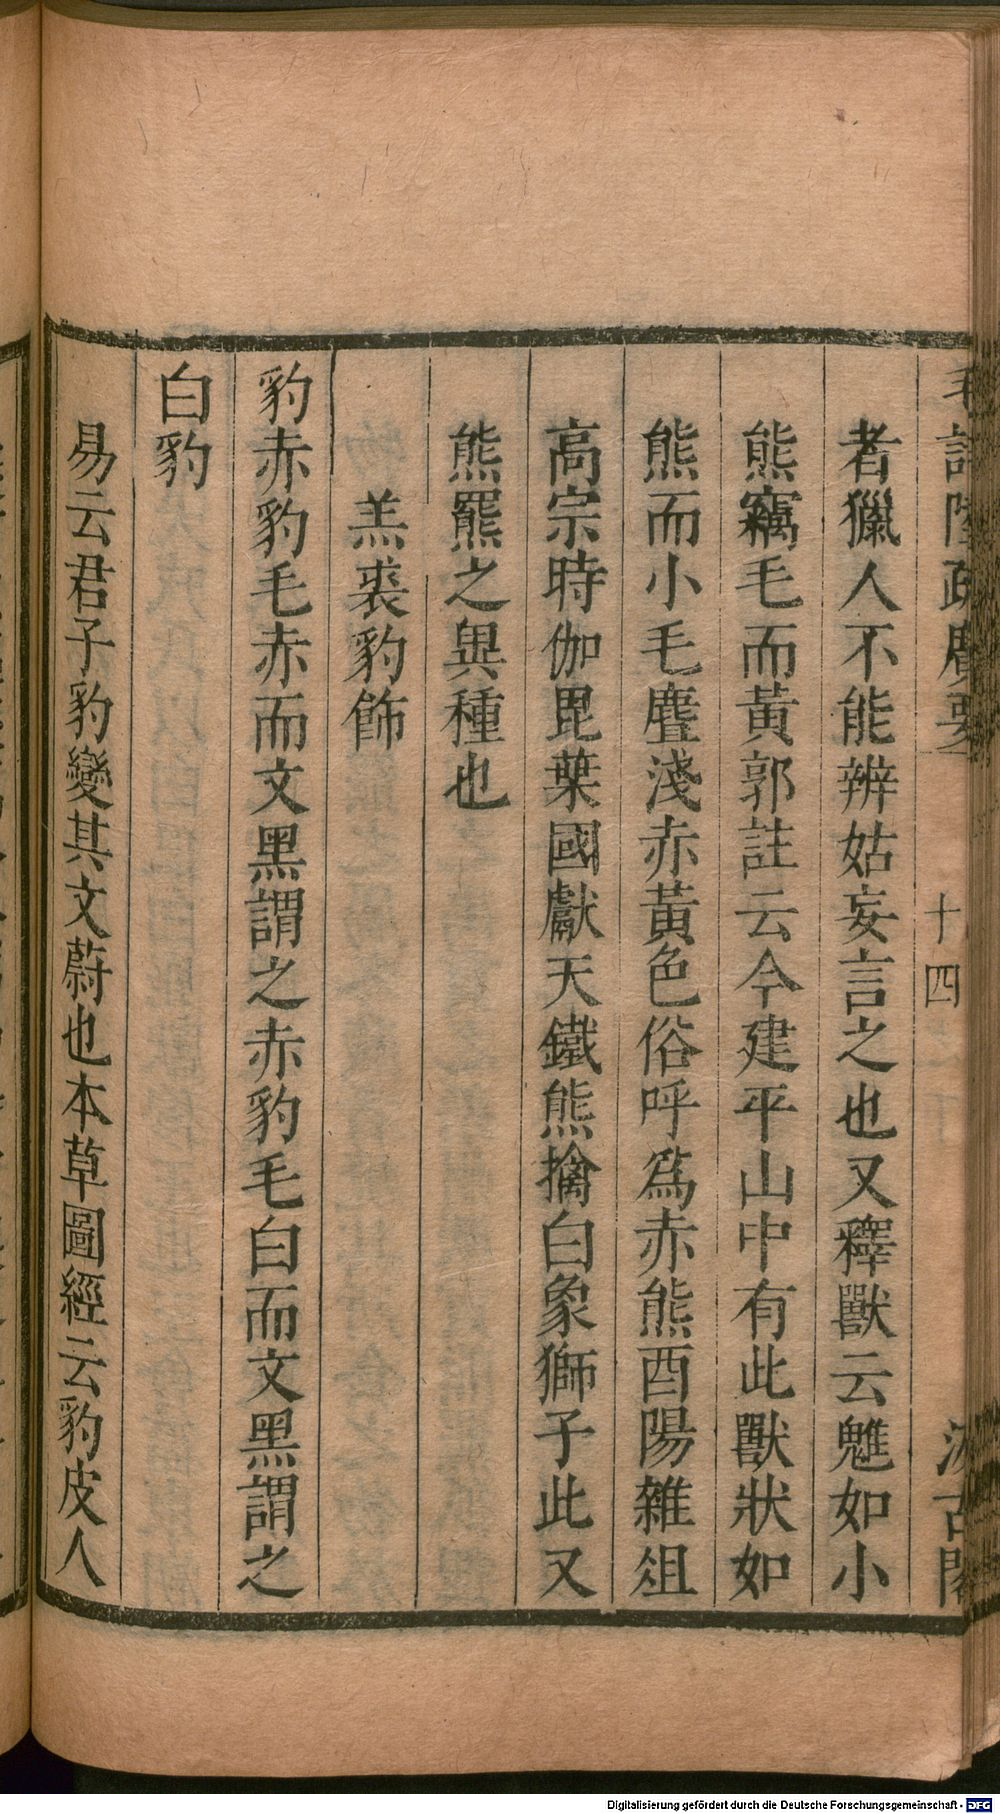 毛詩陸疏廣要
十四
汲古閣
者獵人不能辨姑妄言之也又釋獸云魋如小
熊竊毛而黃郭註云今建平山中有此獸狀如
熊而小毛麆淺赤黃色俗呼爲赤熊酉陽雜俎
高宗時伽毘葉國獻天鐵熊擒白象獅子此又
熊羆之異種也
羔裘豹飾
豹赤豹毛赤而文黑謂之赤豹毛白而文黑謂之
白豹
易云君子豹變其文蔚也本草圖經云豹皮人
Digitalisierung gefördert durch die Deutsche Forschungsgemeinschaft - DFG